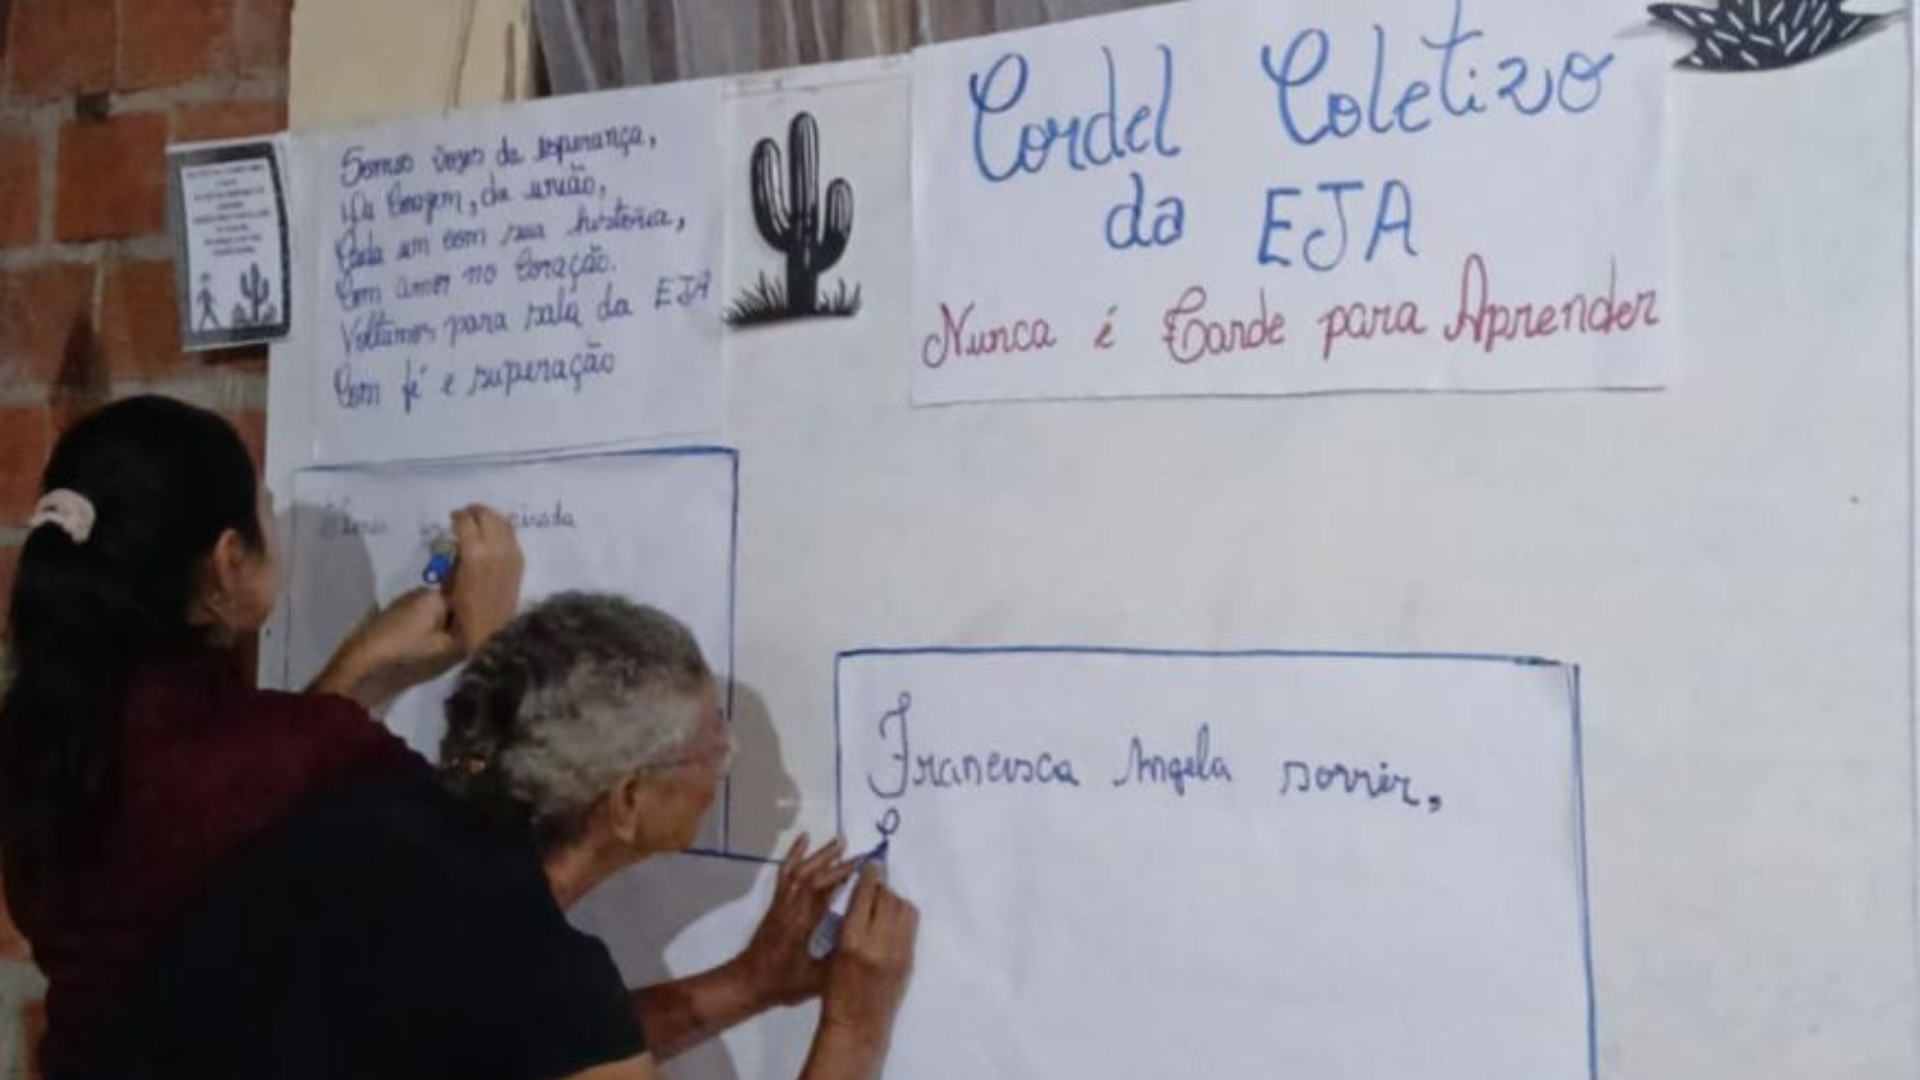 Somos vozes da esperança,
Da Coragem, da união,
Cada um com sua história,
Com amor no Coração.
Voltamos para sala da EJA
Com fé e superação
Cordel Coletivo
da EJA
Nunca é Tarde para Aprender
Francisca Angela sorrir,